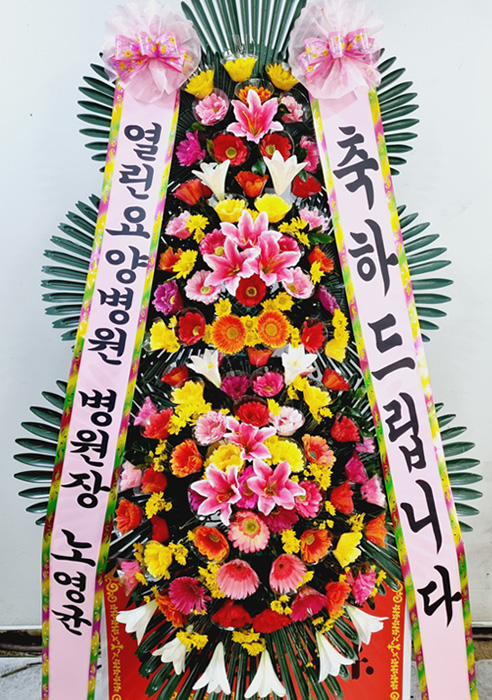 열린요양병원 병원장 노영균
축하드립니다